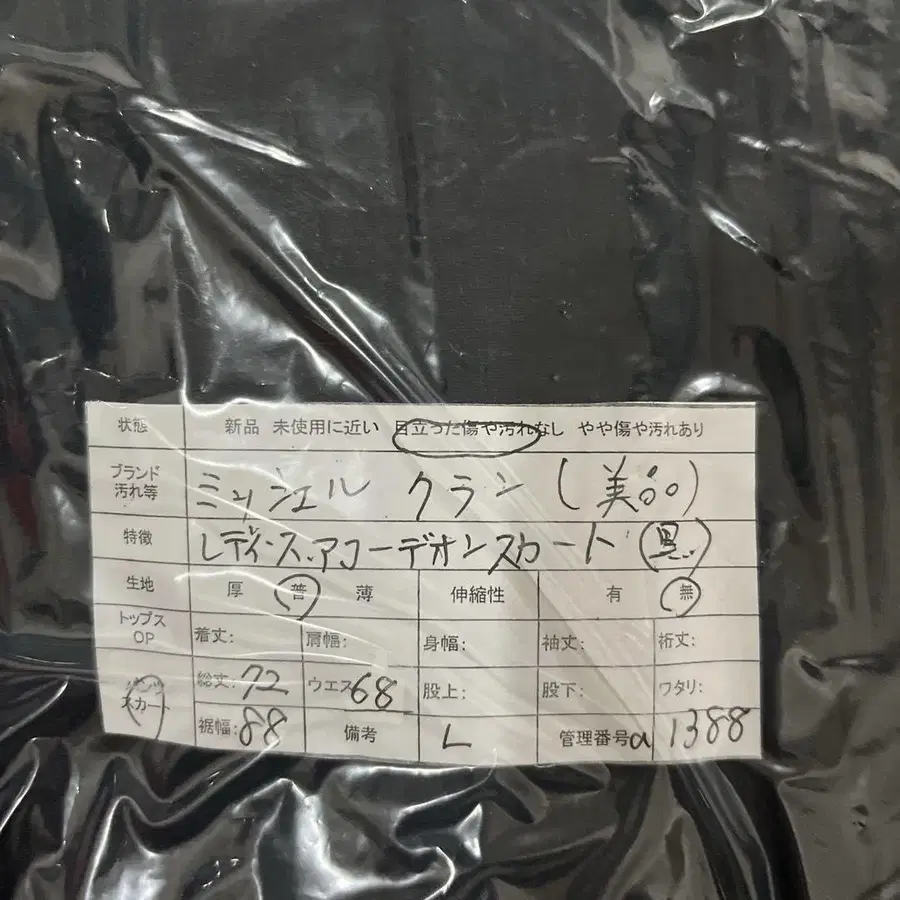 状態 新品 未使用に近い 目立った傷や汚れなし やや傷や汚れあり
ブランド 汚れ等 ミッシェル クラン (美品)
特徴 レディース アコーデオンスカート (黒)
生地 厚 普 薄 伸縮性 有 無
トップス OP 着丈: 肩幅: 身幅: 袖丈: 裄丈:
スカート 総丈: 72 ウエス 68 股上: 股下: ワタリ:
裾幅: 88 備考 L 管理番号 a 1388